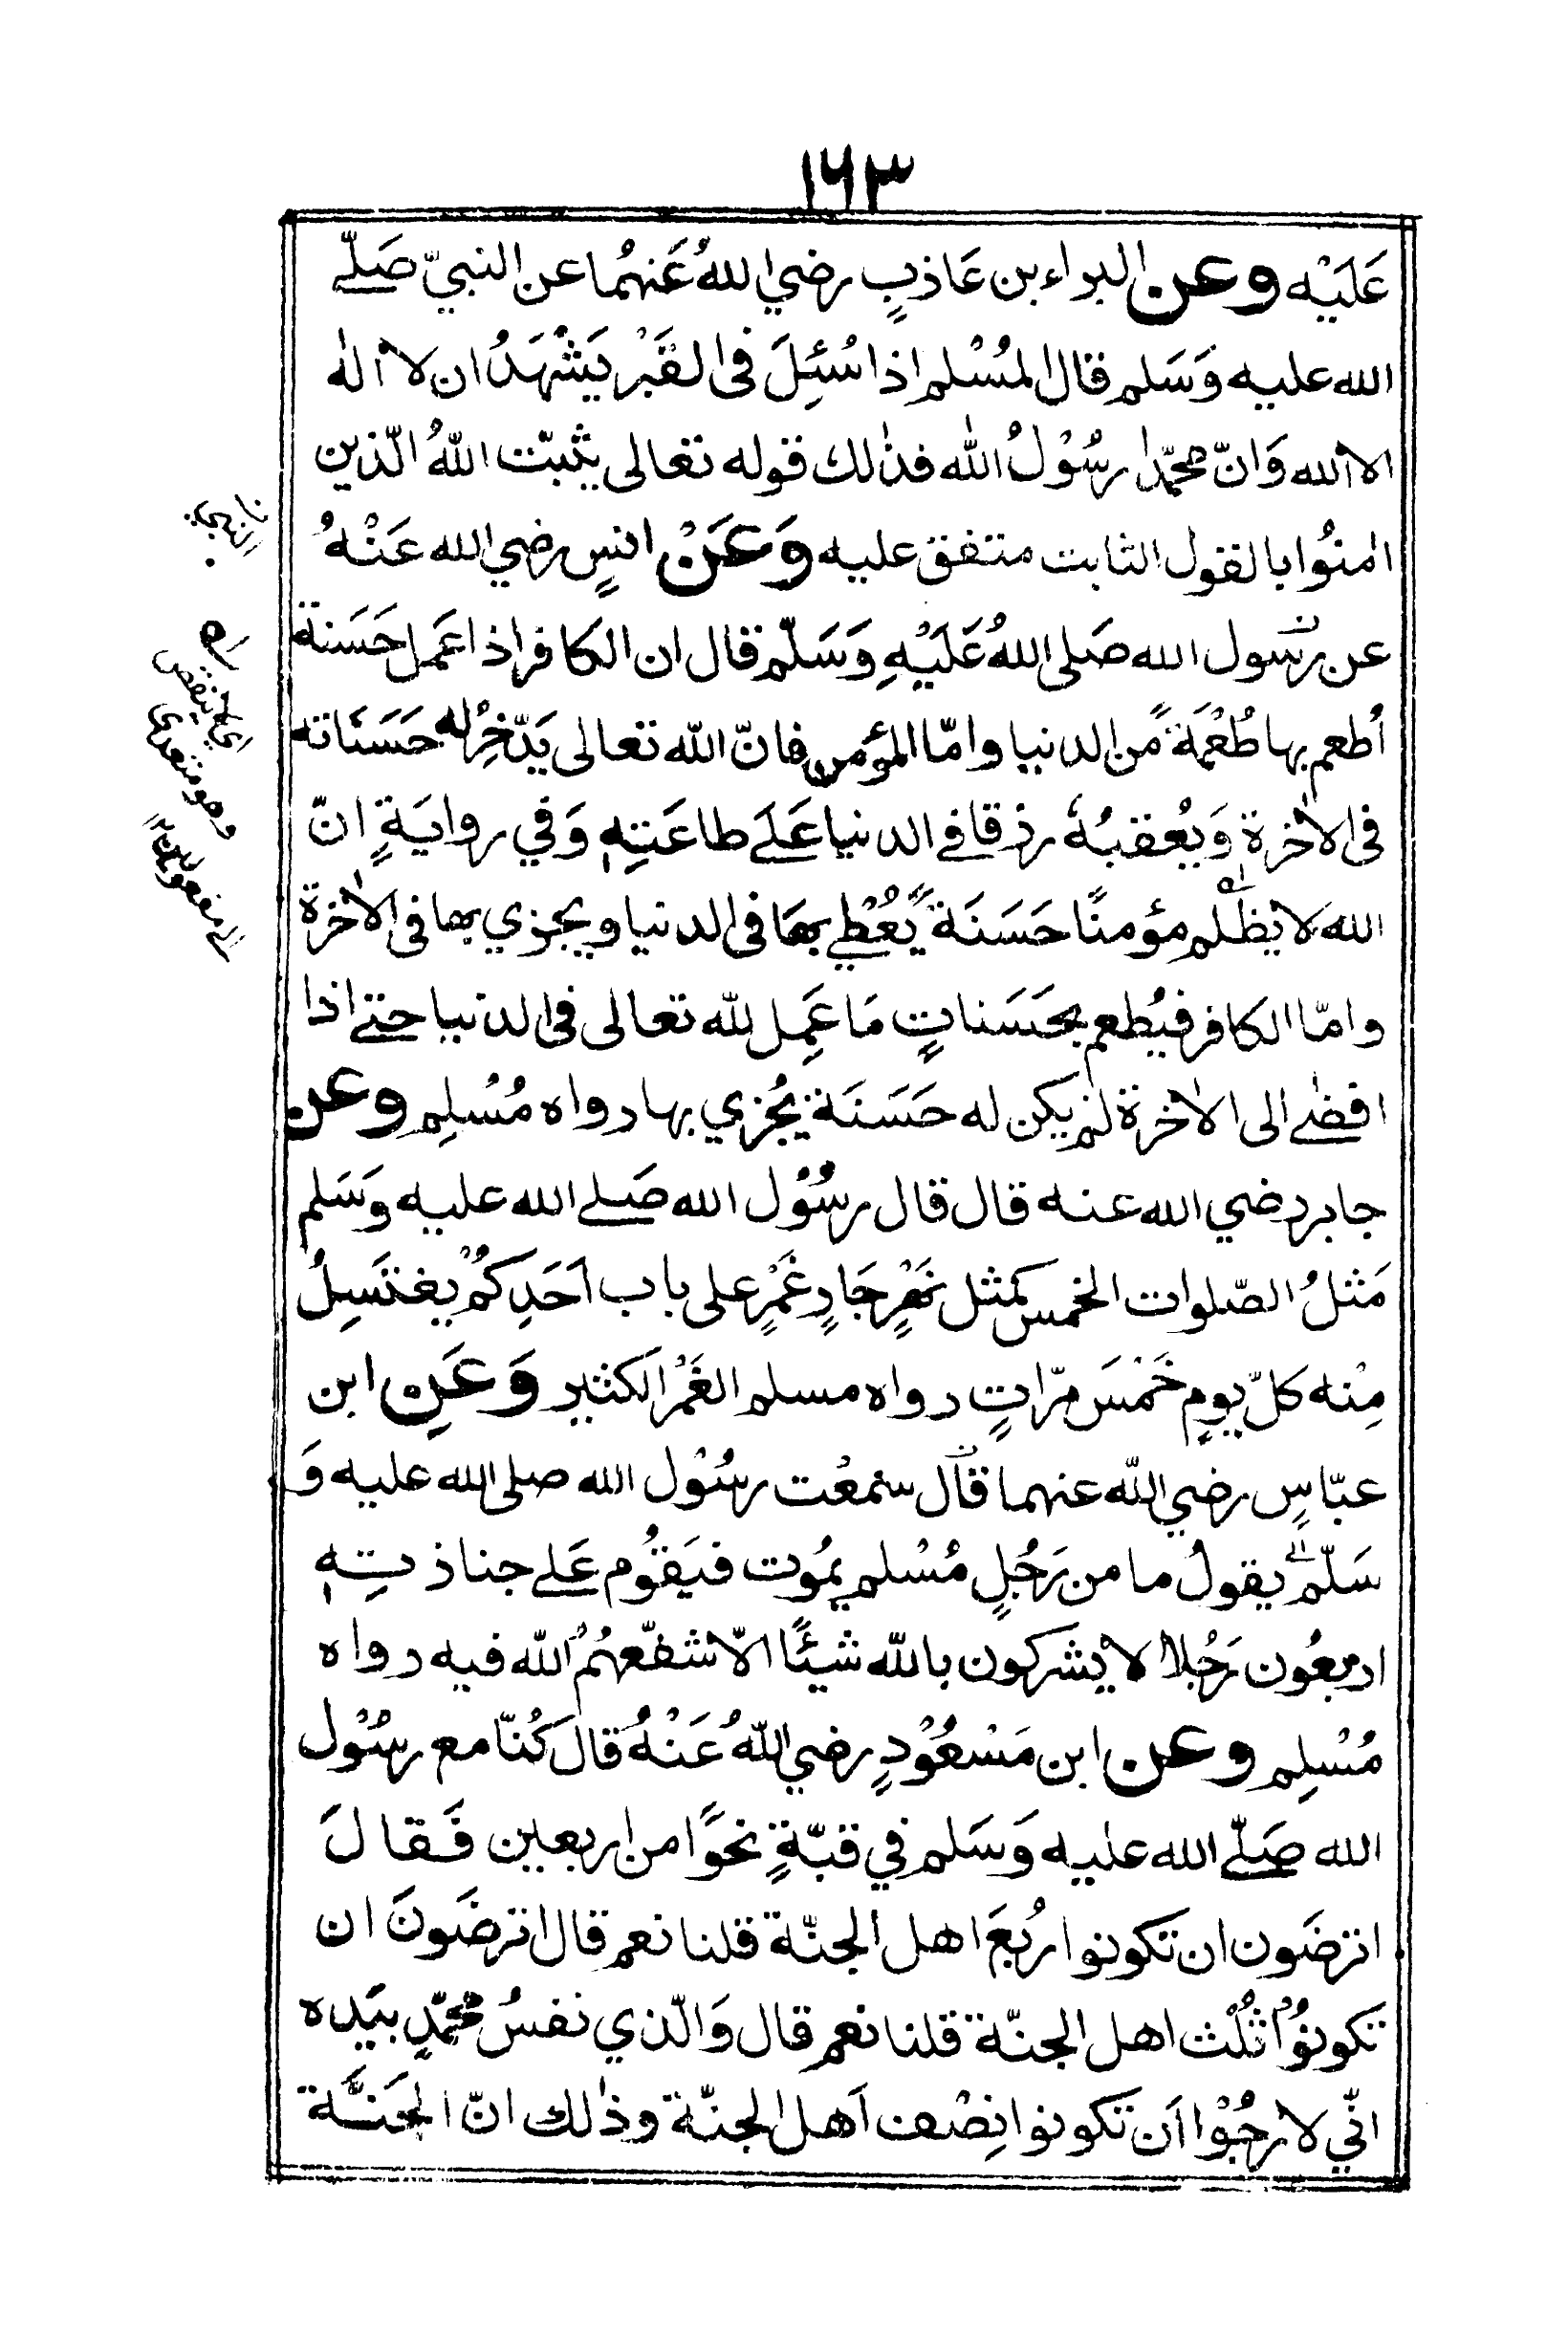 ١٦٣
عَلَيْه وعن البراء بن عَاذبٍ رضي اللهُ عَنهُما عن النبيّ صَلّے
الله عليه وَسَلم قال المُسْلم اذا سُئِلَ فى القَبْر يَشْهَدُ ان لا اله
الا الله وَانّ محمّدا رسُوْلُ الله فذٰلك قوله تعالى يثبّت اللهُ الّذين
اٰمنُوا بالقول الثابت متفق عليه وَعَنْ انسٍ رضي الله عَنْهُ
عن رسول الله صَلى اللهُ عَلَيْهِ وَسَلّم قال ان الكافر اذا عَمِل حَسَنة
اُطعم بها طُعْمَةً من الدنيا وامّا المؤمن فانّ الله تعالى يَدّخِرُ له حَسَنَاته
فى الاٰخرة وَيُعْقبُهُ رزقا فے الدنيا عَلَے طاعَتِهٖ وَفي روايَةٍ انّ
الله لا يظْلم مؤمنًا حَسَنَةً يُعْطٰے بهَا فى الدنيا ويجزي بها فى الاٰخرة
وامّا الكافر فيُطعم بحَسَناتٍ مَا عَمِل لله تعالى فى الدنيا حتے اذا
افضٰے الى الاٰخرة لم يكن له حَسَنَة يُجْزي بها رواه مُسْلِم وعن
جابر رضي الله عنه قال قال رسُوْل الله صَلے الله عليه وَسَلم
مَثلُ الصّلوات الخمس كمثل نَهْرٍ جَارٍ غَمْرٍ على باب اَحَدِكُمْ يغتَسِلُ
مِنْه كلّ يومٍ خَمْسَ مرّاتٍ رواه مسلم الغَمْر الكثير وَعَن ابن
عبّاسٍ رضي الله عنهما قال سَمعْت رسُوْل الله صلى الله عليه وَ
سَلّم يقول ما من رَجُلٍ مُسْلم يمُوت فيَقوُم عَلے جنازتِهٖ
اربعُون رَجُلا لا يشركون بالله شيئًا الّا شفّعهُمُ الله فيه رواه
مُسْلِم وعن ابن مَسْعُوْدٍ رضي اللهُ عَنْهُ قالَ كُنّا مع رسُوْل
الله صَلّے الله عليه وَسَلم في قبّةٍ نحوًا من اربعين فَقالَ
اترضَون ان تكونوا رُبعَ اهل الجنّة قلنا نعم قال اترضَونَ ان
تكونُوْا ثلُث اهل الجنّة قلنا نعم قال وَالّذي نفسُ محمّدٍ بيَده
انّي لارجُوْا اَن تكونوا نِصْف اَهل الجنّة وذٰلك انّ الجَنَّة
النبي
اي لا ينقص
وهو متعدى
الے مفعولين